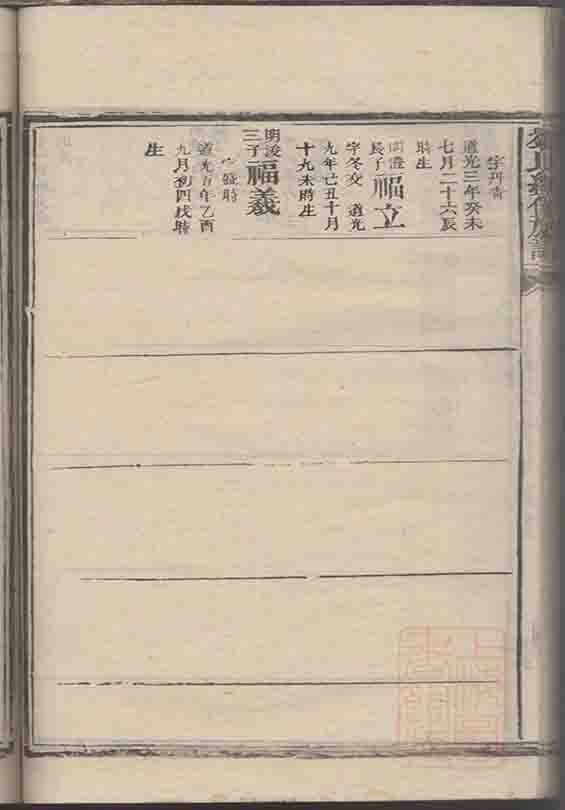 字
道光三年癸未
七月二十六辰
時生
明
長子
福立
字冬交 道光
九年己丑十月
十九未時生
明浚
三子
福義
字發時
道光五年乙酉
九月初四戌時
生
氏